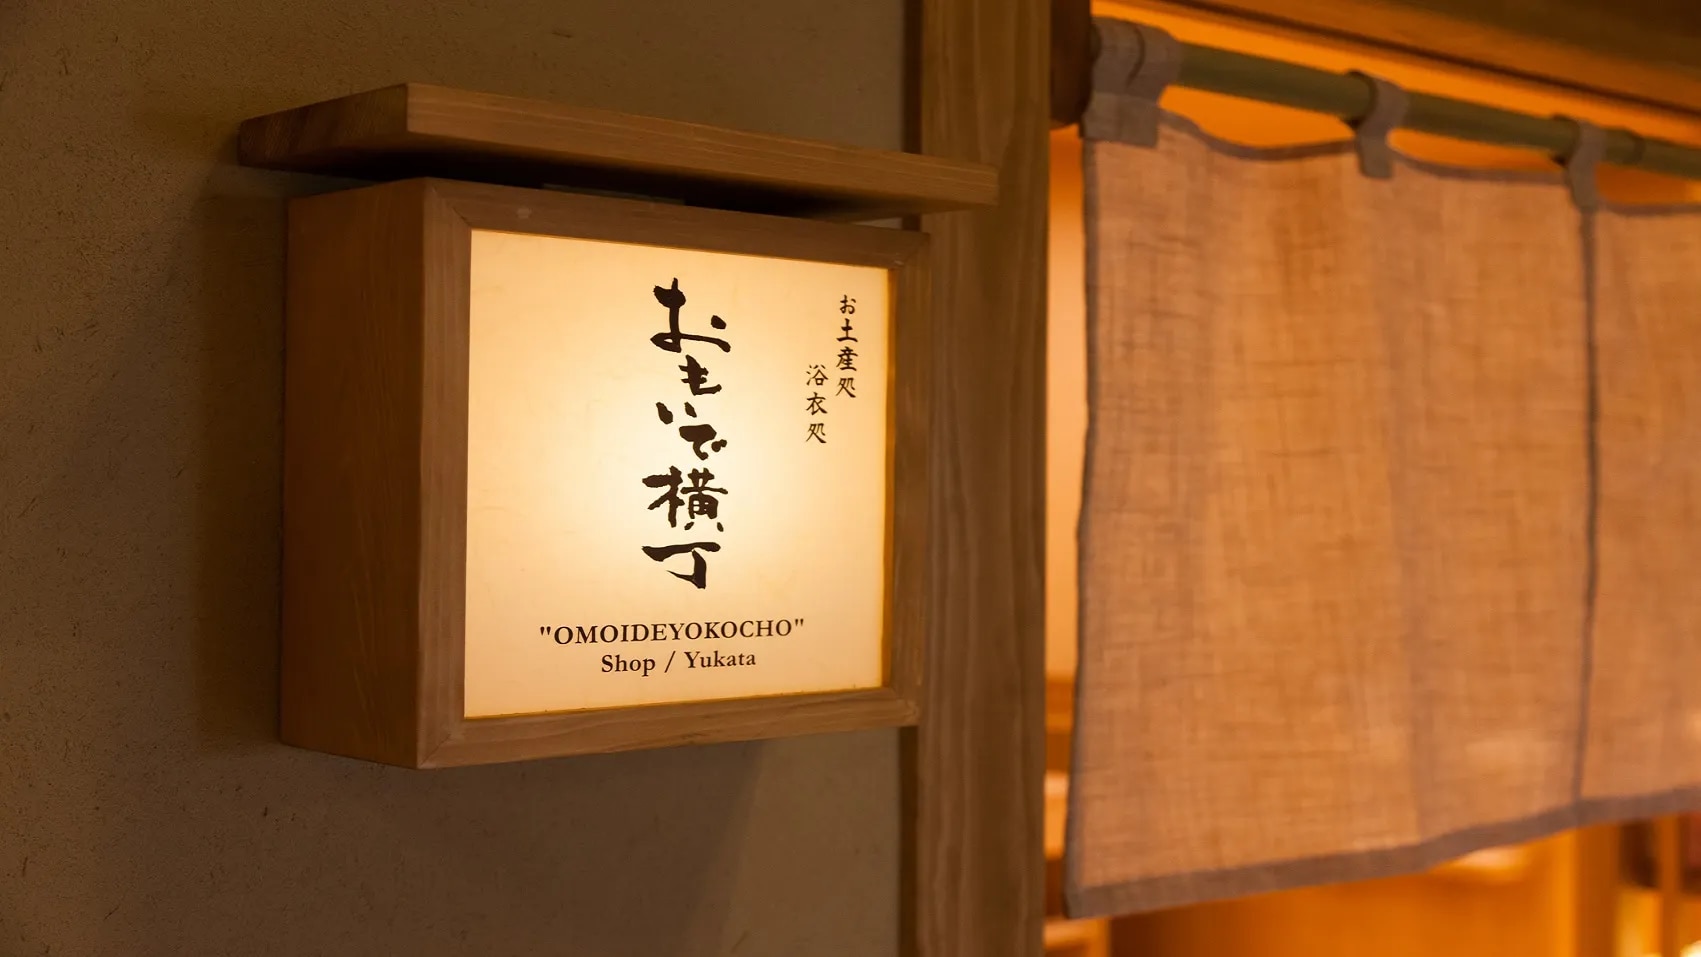 お土産処
浴衣処
おもいで横丁
"OMOIDEYOKOCHO"
Shop / Yukata